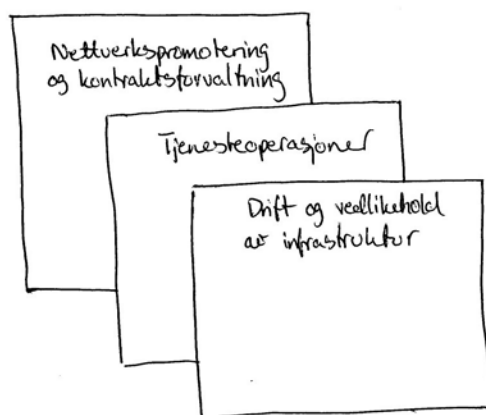 Nettverkspromotering
og kontraktsforvaltning
Tjenesteoperasjoner
Drift og vedlikehold
av infrastruktur